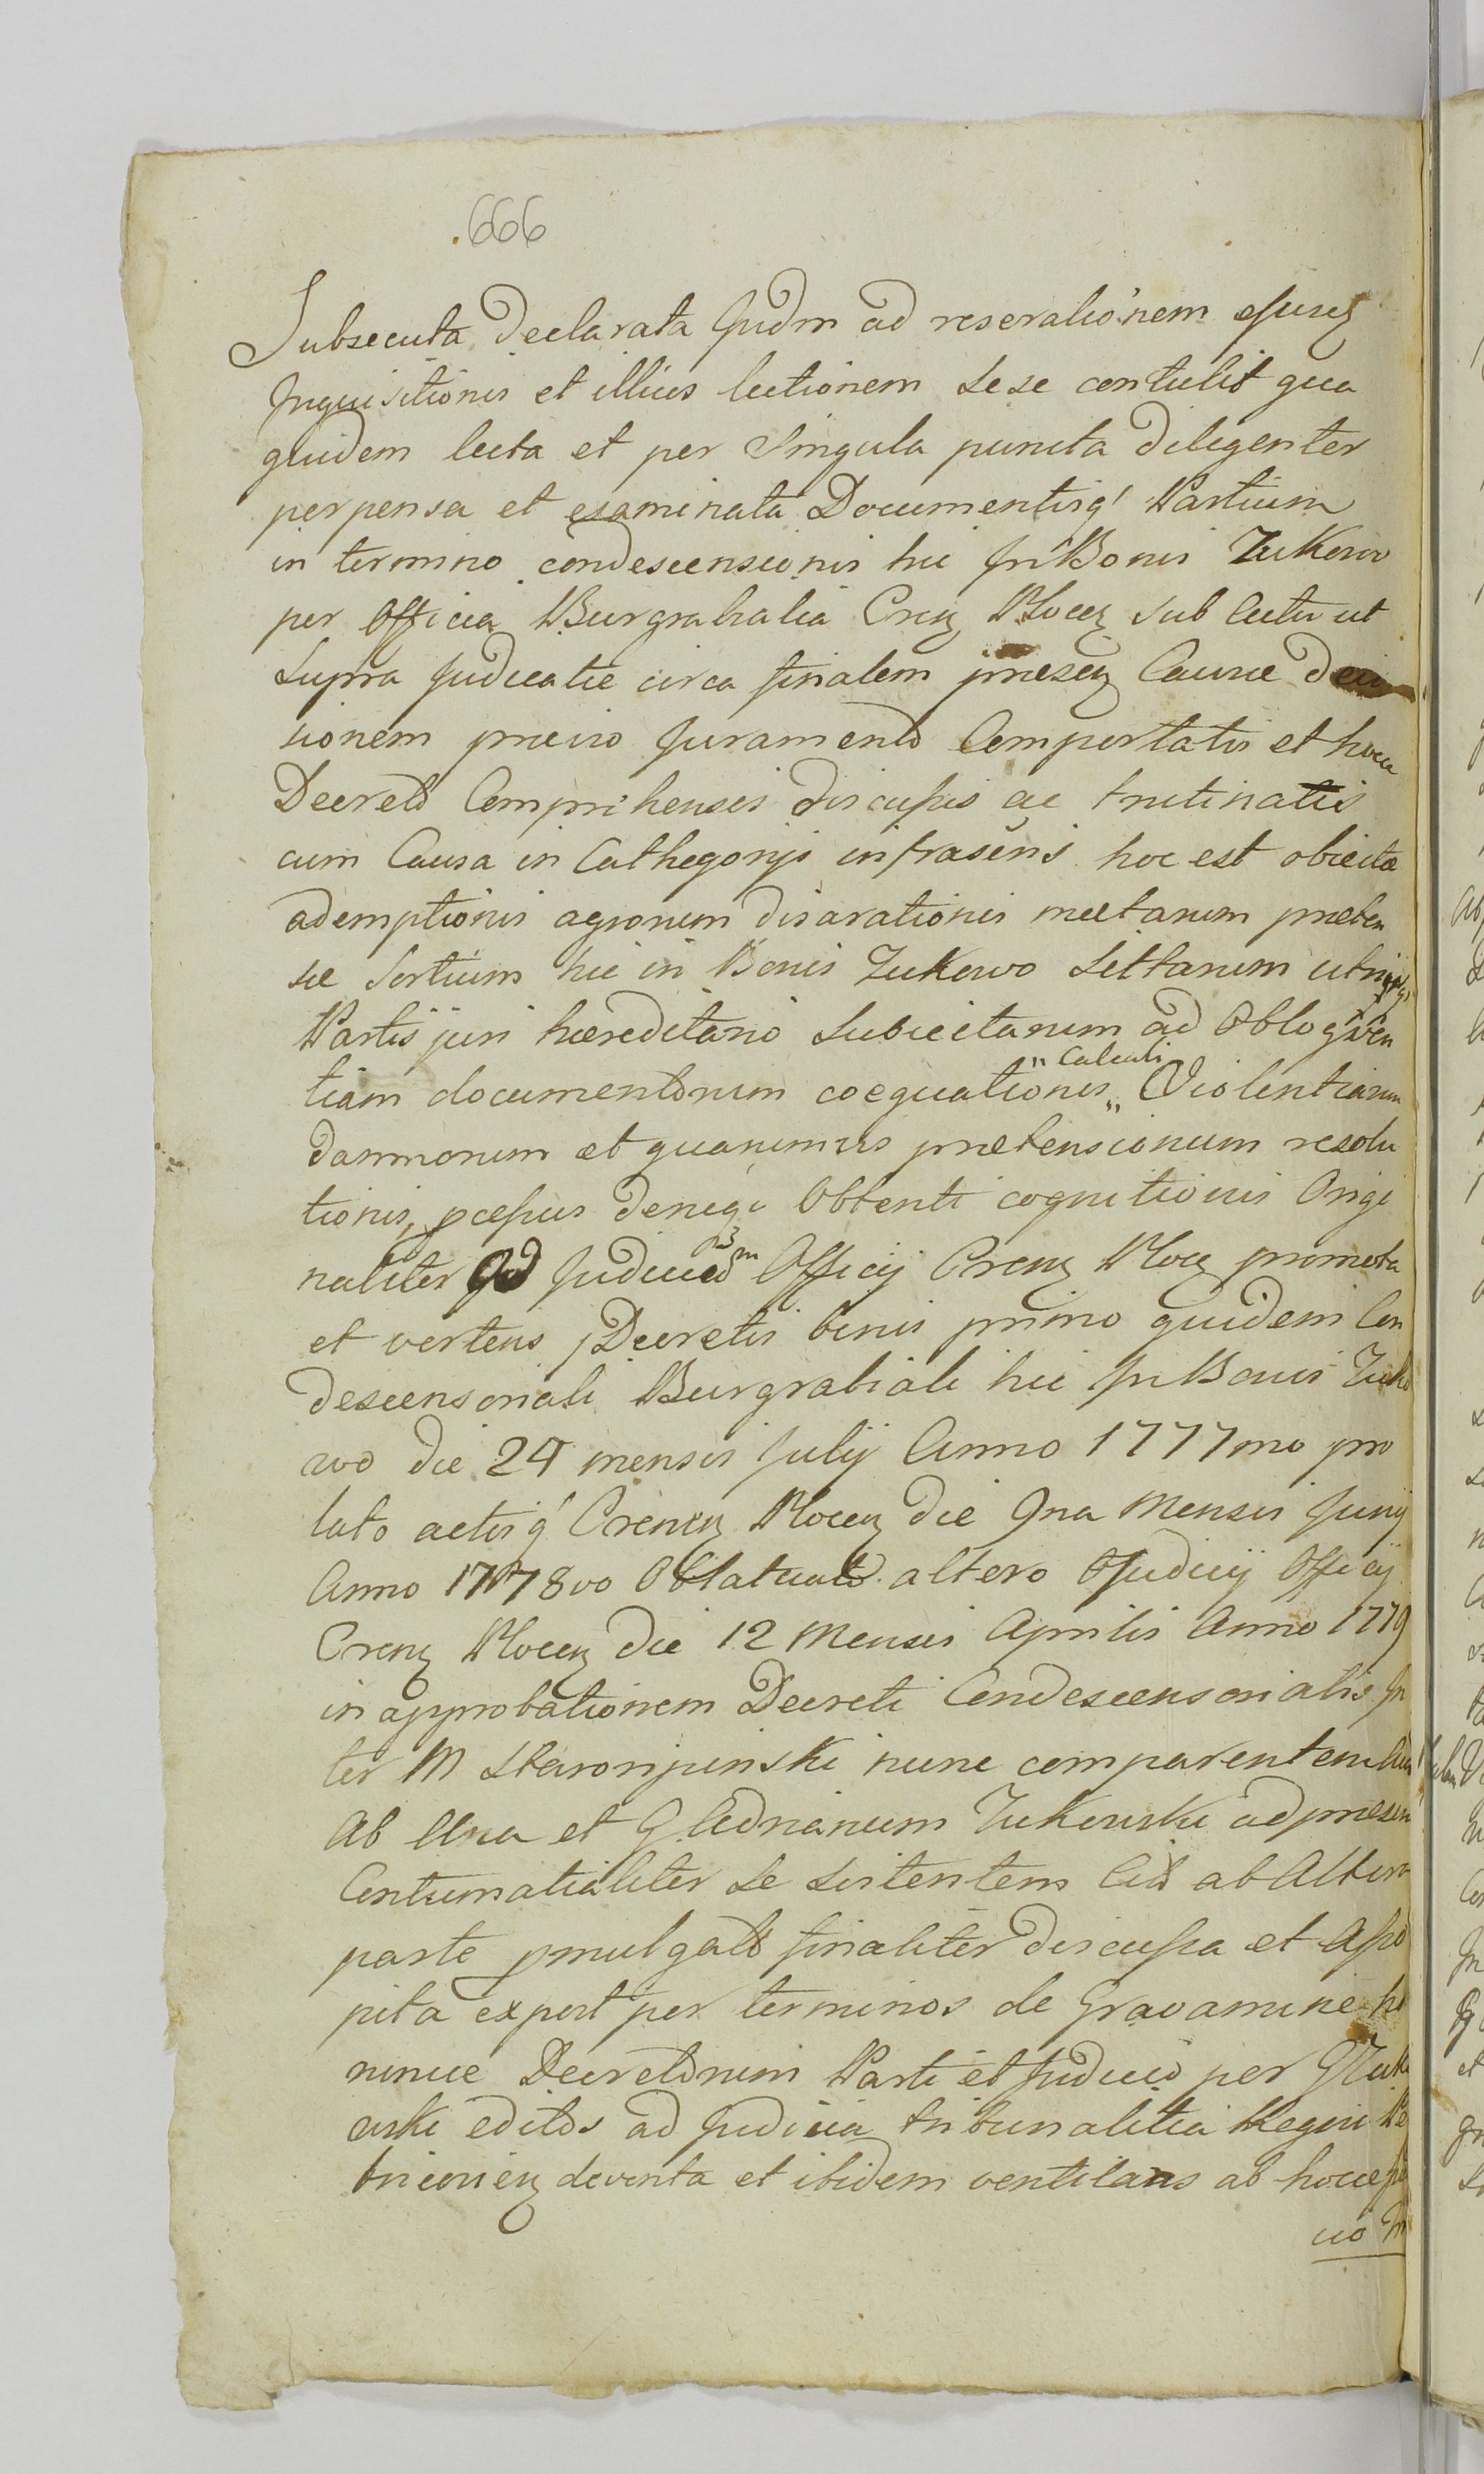 666
Subsecuta Declarata Judm ad reseralionem ejusq
Inquisitionis et illius lectionem sese contulit qua
quidem lecta et per Singula puncta diligenter
perpensa et examinata Documentisq' Partium
in termino condescensionis hic In Bonis Zukowo
per Officia Burgrabialia Cren Plocen sub actu ut
supra Judicatie circa finalem presen Causæ deci
sionem prævio Juramento Comportatis et hocce
Decreto Comprehensis discussis ac trutinatis
cum Causa in Cathegorijs infrasens hoc est obiectæ
ademptionis agrorum disarationis metarum præten
sæ Sortium hic in Bonis Zukowo Sittarum utriusq'
Partis juri hæreditario Subiectarum ad Obloquen
tiam documentorum coequationis „ Violentiarum
„ Calculi
damnorum et quarumvis prætensionum resolu
tionis, pcessus deniq; Obtenti cognitionis Origi
naliter Judicium Officij Cren Plocen promota
et vertens, Decretis binis primo quidem Con
descensoriali Burgrabiali hic In Bonis Zuko
wo die 24 mensis Julij Anno 1777mo pro
lato actisq' Crenen Plocen die 9na Mensis Junij
Anno 1778vo Oblatuato altero Judicij Officij
Cren Plocen die 12 Mensis Aprilis Anno 1779
in approbationem Decreti Condescensorialis In
ter M Staroripinski nunc comparentem
Ab Una et G Adrianum Zukowski ad præsen
Contumatialiter se sistentem Cit ab Altera
parte pmulgato finaliter discussa et Asso
pita expost per terminos de Gravamine ho
runce Decretorum Parti et Judicio per G Zuko
wski editos ad Judicia tribunalitia Regni Pe
tricovien devoluta et ibidem ventilans ab hocce
uo In